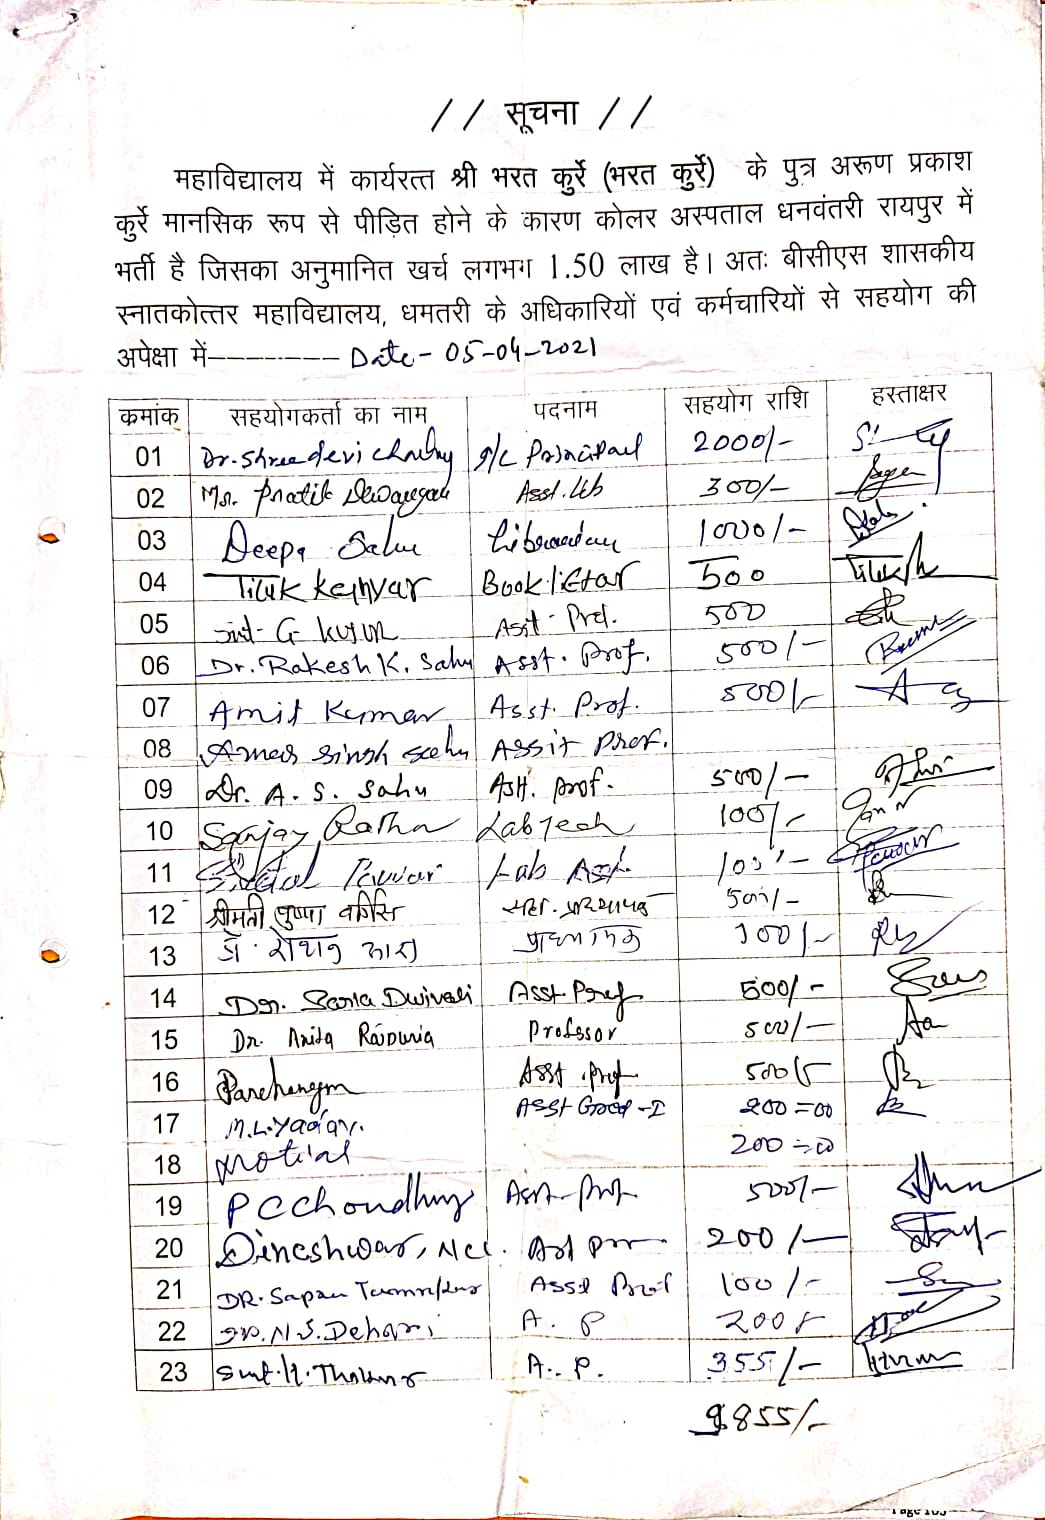 // सूचना //
महाविद्यालय में कार्यरत्त श्री भरत कुर्रे (भरत कुर्रे) के पुत्र अरूण प्रकाश
कुर्रे मानसिक रूप से पीड़ित होने के कारण कोलर अस्पताल धनवंतरी रायपुर में
भर्ती है जिसका अनुमानित खर्च लगभग 1.50 लाख है। अतः बीसीएस शासकीय
स्नातकोत्तर महाविद्यालय, धमतरी के अधिकारियों एवं कर्मचारियों से सहयोग की
अपेक्षा में------- Date- 05-04-2021
कमांक सहयोगकर्ता का नाम पदनाम सहयोग राशि हस्ताक्षर
01 Dr. Shreedevi Choubey Principal 2000/-
02 Mr. Pratik Dewangan Asst. Lib 300/-
03 Deepa Sahu Librarian 1000/-
04 Tilak Book lifter 500
05 Smt- G Kujur Asst- Prof. 500
06 Dr. Rakesh K. Sahu Asst. Prof. 500/-
07 Amit Kumar Asst. Prof. 500/-
08 Amar Singh Sahu Assit Prof.
09 Dr. A. S. Sahu Asst. Prof. 500/-
10 Sanjay Lab Tech 100/-
11 Pawar Lab Asst. 100/-
12 श्रीमती पुष्पा सहा. प्राध्यापक 500/-
13 डॉ. प्राध्यापक 100/-
14 Dr. Sarla Dwivedi Asst. Prof 500/-
15 Dr. Anita Rajpuria Professor 500/-
16 Asst. Prof 500/-
17 M.L. Yadav. Asst Grad-I 200=00
18 Motilal 200=00
19 P C Choudhary Asst-Prof 500/-
20 Dineshwar, Asst 200/-
21 DR. Sapan Asst Prof 100/-
22 N.S. A. P 200/-
23 Smt. H. A.. P. 355/-
9855/-